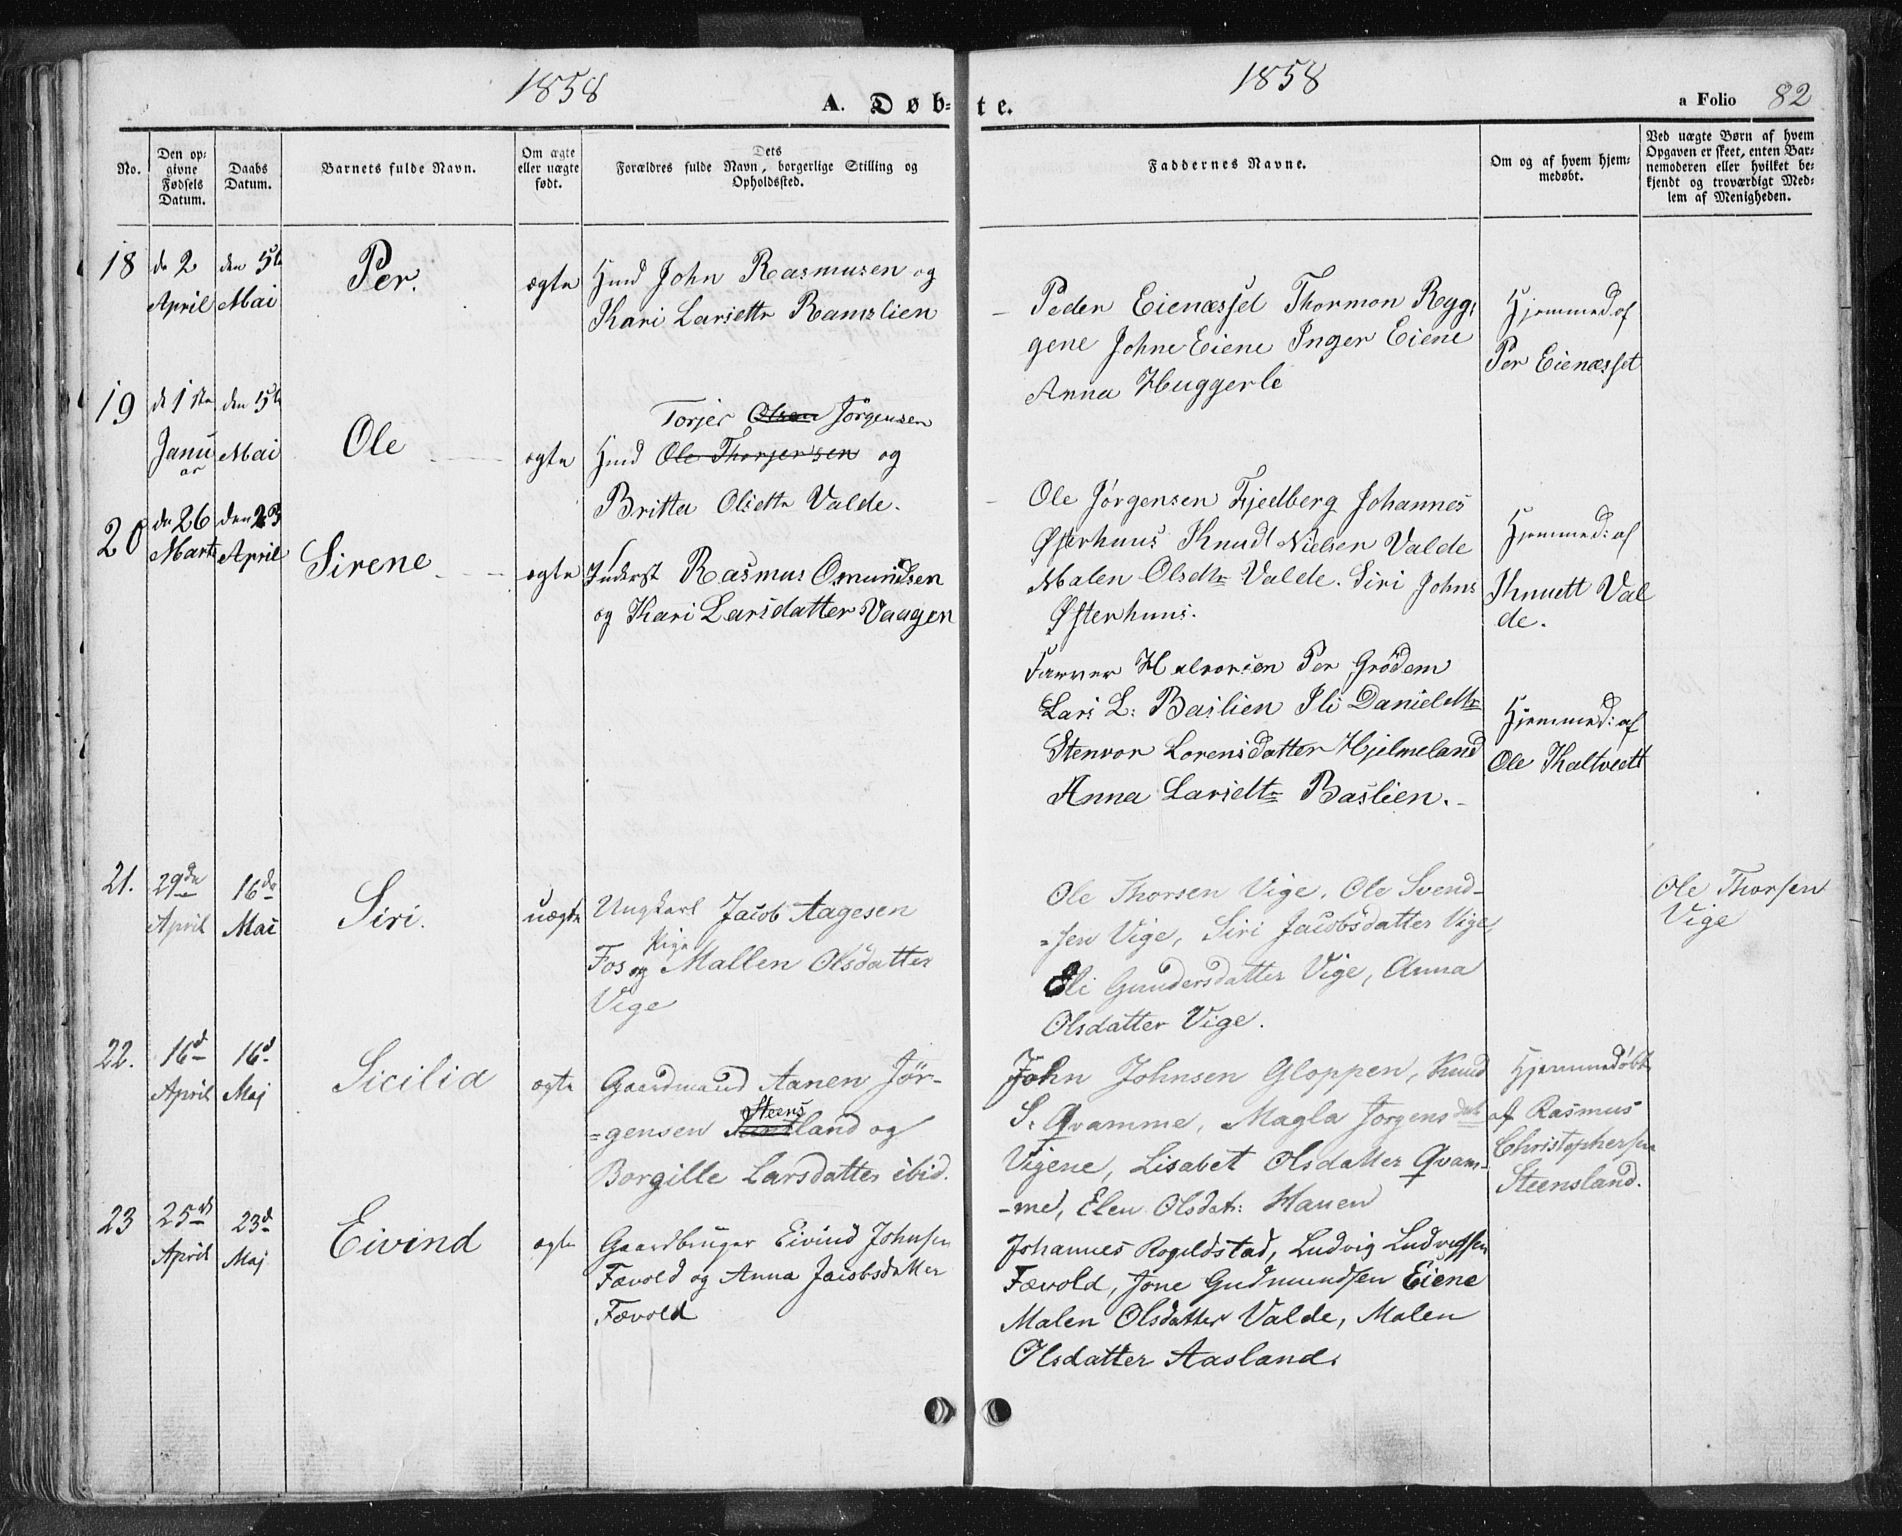 1858
A. Døb-
te.
1858
a Folio 82
No.
Den op-
givne
Fødsels
Datum.
Daabs
Datum.
Barnets fulde Navn.
Om ægte
eller uægte
født.
Dets
Forældres fulde Navn, borgerlige Stilling og
Opholdssted.
Faddernes Navne.
Om og af hvem hjem-
medøbt.
Ved uægte Børn af hvem
Opgaven er skeet, enten Bar-
nemoderen eller hvilket be-
kjendt og troværdigt Med-
lem af Menigheden.
18
de 2
April
den 5te
Mai
Per.
ægte
Hmd John Rasmusen og
Kari Larsettr Ramslien
Peder Eienæsset Thormon Ryg,
gene Johne Eiene Inger Eiene
Anna Huggerle
Hjemmed af
Per Eienæsset
19
de 1ste
Janu
ar
den 5te
Mai
Ole
ægte
Torjer Olsen Jörgensen
Hmd Ole Thorjersen og
Britta Olsettr Valde.
Ole Jörgensen Fjeelberg Johannes
Østerhuus Knud Nielsen Valde
Malen Olsdtr Valde. Siri Johns
Østerhuus.
Hjemmed: af
Knuett Val
de.
20
de 26
Marts
den 23
April
Sirene
ægte
Inderst Rasmus Osmundsen
og Kari Larsdatter Vaagen
Halvorsen Per Grödem
Lars L: Baslien Ili Danieldtr
Stenvor Lorensdatter Hjelmeland
Anna Larsdtr Baslien.
Hjemmed: af
Ole Kaltveett
21.
29de
April
16de
Mai
Siri.
uægte
Ungkarl Jacob Aagesen
Fos og Pige Mallen Olsdatter
Vige
Ole Thorsen Vige, Ole Svend-
=sen Vige, Siri Jacobsdatter Vige,
Eli Gundersdatter Vige, Anna
Olsdatter Vige.
Ole Thorsen
Vige
22.
16d
April
16d
Maj
Sicilia
ægte
Gaardmand Aanen Jör-
=gensen Steensland og
Borgille Larsdatter ibid.
John Johnsen Gloppen, Knud
S. Qvamme, Magla Jorgensdat
Vigene, Lisabet Olsdatter Qvam-
-me, Elen Olsdat: Hauen
Hjemmedøbt
af Rasmus
Christophersen
Steensland.
23
25d
April
23d
Maj
Eivind
ægte
Gaardbruger Eivind Johnsen
Fævold og Anna Jacobsdatter
Fævold
Johannes Rogeldstad, Ludvig Ludvigsen
Fævold, Jone Gudmundsen Eiene
Malen Olsdatter Valde, Malen
Olsdatter Aasland.